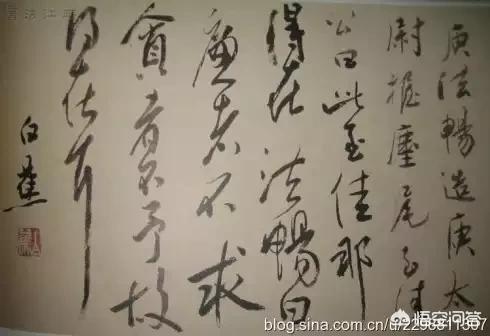 庾法暢造庾太
尉握麈尾至佳
公曰此至佳那
得在法暢曰
廉者不求
貪者不予故
得在耳
白蕉
悟空问答
blog.sina.com.cn/u/2238811307